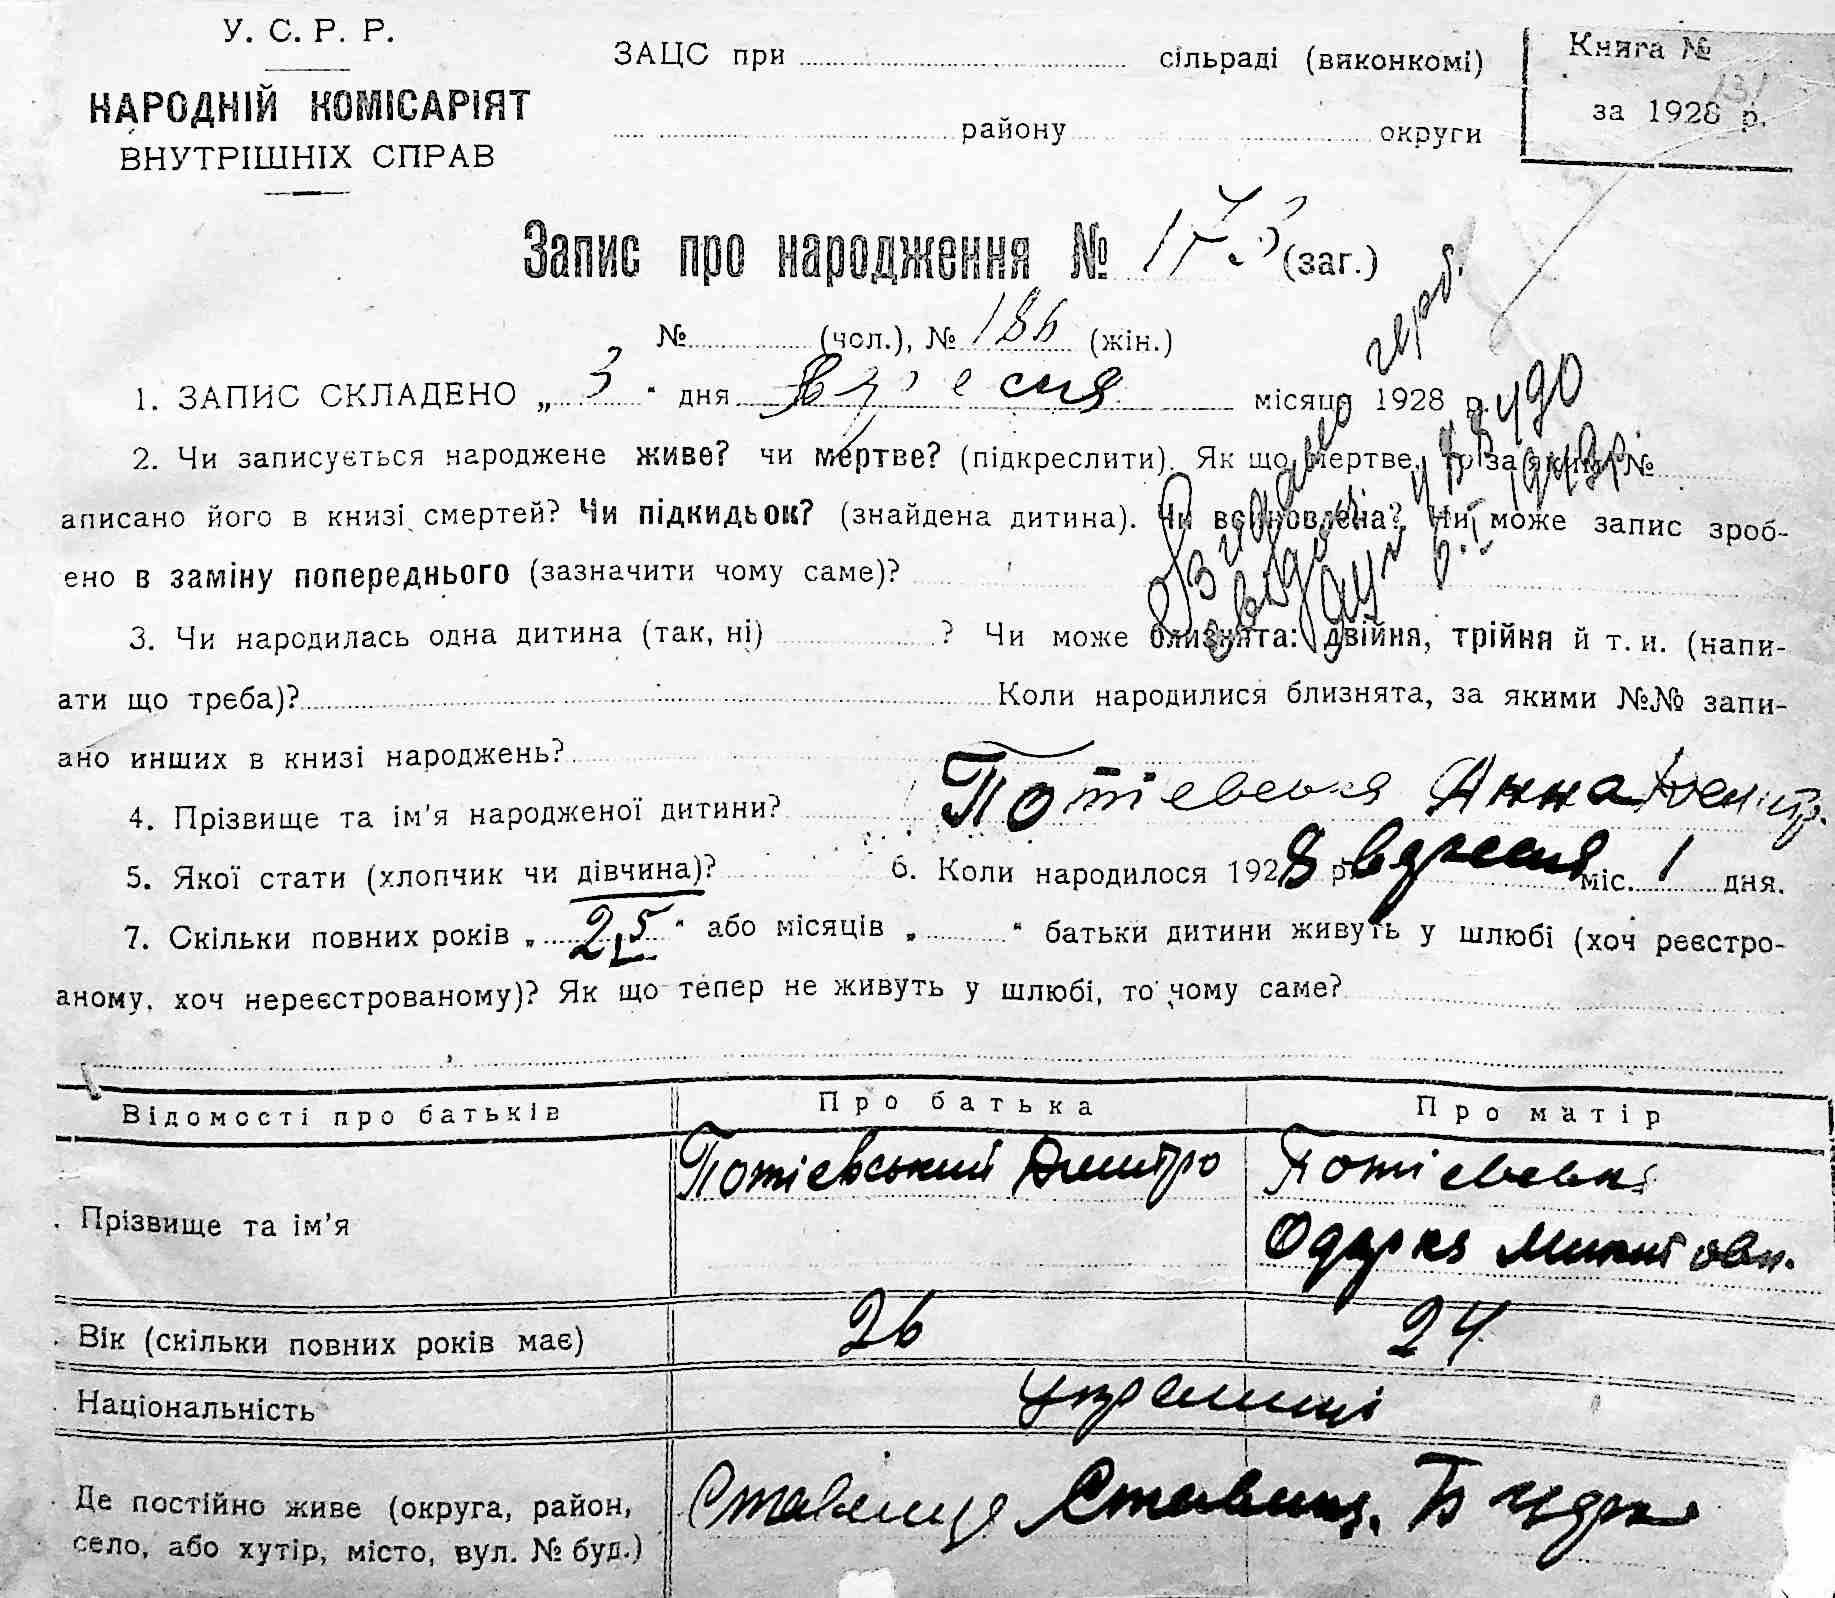 У. С. Р. Р.
НАРОДНІЙ КОМІСАРІЯТ
ВНУТРІШНІХ СПРАВ
ЗАЦС при сільраді (виконкомі)
району округи
Книга №
131
за 1928 р.
Запис про народження № 173 (заг.)
№ (чол.), № 186 (жін.)
1. ЗАПИС СКЛАДЕНО „ 3 " дня вересня місяця 1928 р.
2. Чи записується народжене живе? чи мертве? (підкреслити). Як що мертве, то за яким №
аписано його в книзі смертей? Чи підкидьок? (знайдена дитина). Чи всиновлена? Чи може запис зроб-
ено в заміну попереднього (зазначити чому саме)?
Видано герб.
3. Чи народилась одна дитина (так, ні) ? Чи може близнята: двійня, трійня й т. и. (напи-
ати що треба)? Коли народилися близнята, за якими №№ запи-
ано инших в книзі народжень?
4. Прізвище та ім'я народженої дитини? Потієвська Анна Дмитр.
5. Якої стати (хлопчик чи дівчина)? 6. Коли народилося 1928 р. вересня міс. 1 дня.
7. Скільки повних років „ 2,5 " або місяців „ " батьки дитини живуть у шлюбі (хоч реєстро-
аному, хоч нереєстрованому)? Як що тепер не живуть у шлюбі, то чому саме?
Відомості про батьків Про батька Про матір
Прізвище та ім'я Потієвський Дмитро Потієвська
Одарка Микитовн.
Вік (скільки повних років має) 26 24
Національність українці
Де постійно живе (округа, район,
село, або хутір, місто, вул. № буд.)
Ставище Ставищ.